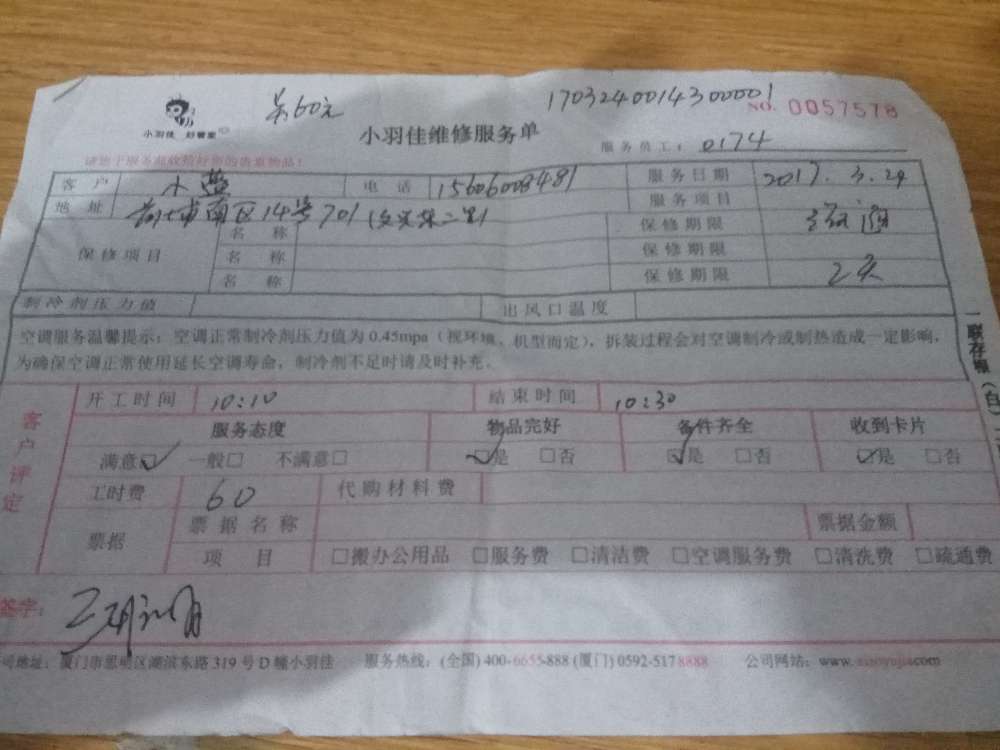 17032400143000001
60元
小羽佳 好管家
小羽佳维修服务单
NO. 0057578
服务员工: 0174
请您于服务前收捡好您的贵重物品!
客户 小蓝 电话 15606008481 服务日期 2017.3.24
地址 南区14号701 服务项目 疏通
保修项目 名称 保修期限
名称 保修期限
名称 保修期限 2天
制冷剂压力值 出风口温度
空调服务温馨提示: 空调正常制冷剂压力值为0.45mpa (视环境、机型而定), 拆装过程会对空调制冷或制热造成一定影响,
为确保空调正常使用延长空调寿命, 制冷剂不足时请及时补充。
一联存根 (白)
客户评定
开工时间 10:10 结束时间 10:30
服务态度 物品完好 备件齐全 收到卡片
满意☑ 一般□ 不满意□ ☑是 □否 ☑是 □否 ☑是 □否
工时费 60 代购材料费
票据 票据名称 票据金额
项目 □搬办公用品 □服务费 □清洁费 □空调服务费 □清洗费 □疏通费
签字:
司地址: 厦门市思明区湖滨东路319号D幢小羽佳 服务热线: (全国) 400-6655-888 (厦门) 0592-5178888 公司网站: www.xiaoyujia.com